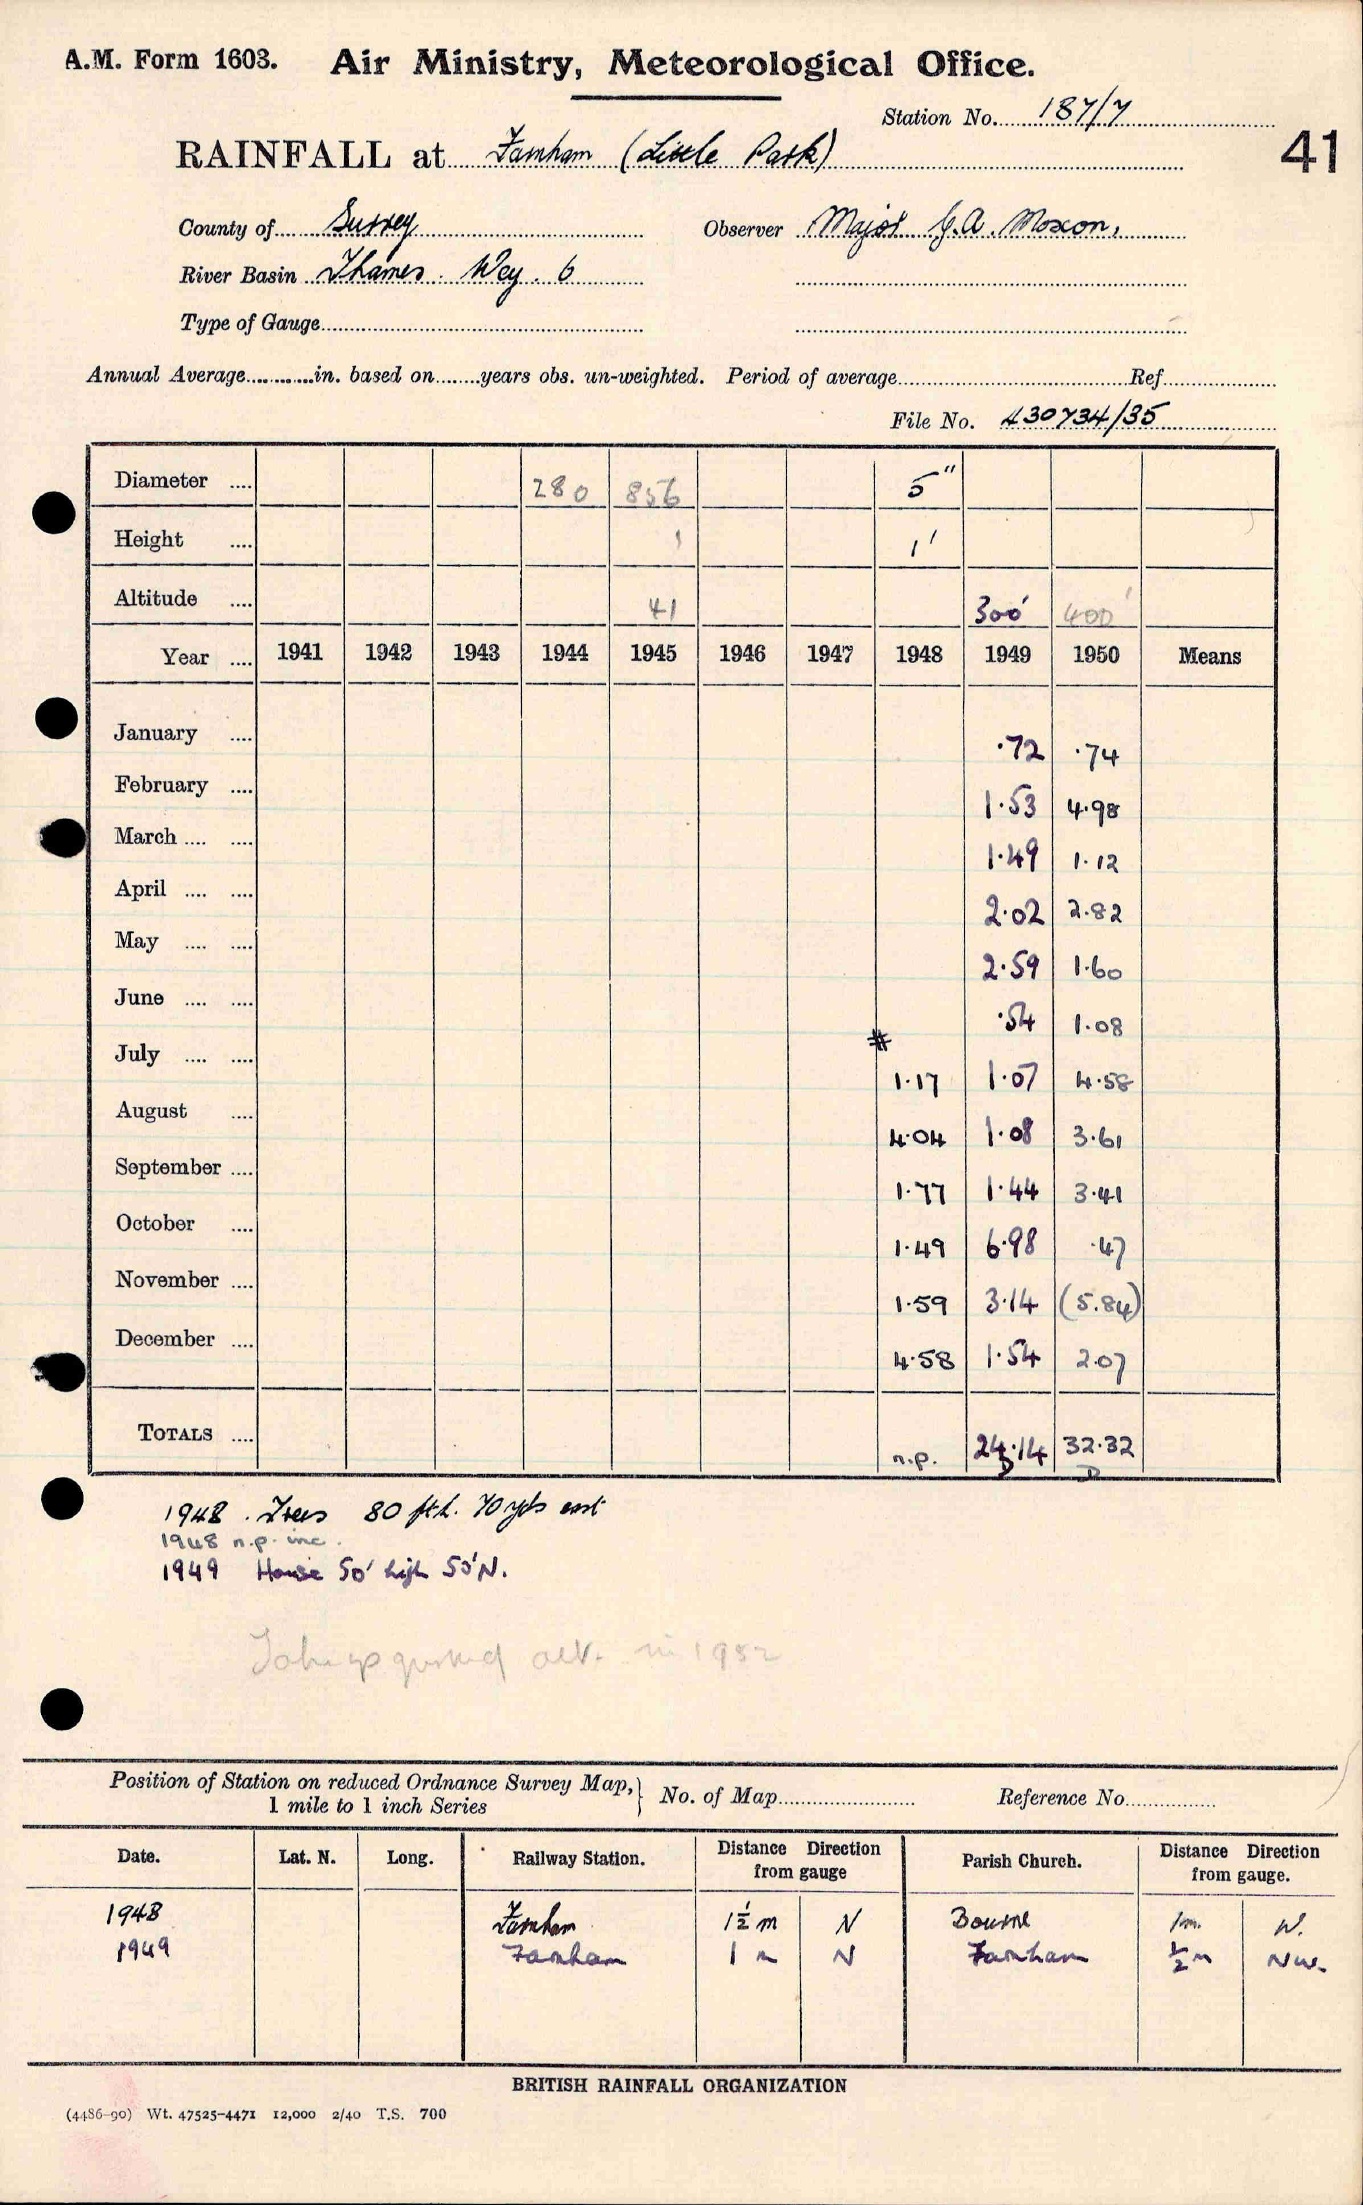 A.M. Form 1603. Air Ministry, Meteorological Office.
Station No. 187/7
RAINFALL at Farnham (Little Park)
41
County of Surrey Observer Major G.A. Moxon,
River Basin Thames. Wey. 6
Type of Gauge
Annual Average............in. based on........years obs. un-weighted. Period of average Ref
File No. 430734/35
Diameter .... 280 856 5"
Height .... 1 1'
Altitude .... 41 300' 400'
Year .... 1941 1942 1943 1944 1945 1946 1947 1948 1949 1950 Means
January .... ·72 ·74
February .... 1·53 4·98
March .... .... 1·49 1·12
April .... .... 2·02 2·82
May .... .... 2·59 1·60
June .... .... ·54 1·08
July .... .... # 1·17 1·07 4·58
August .... 4·04 1·08 3·61
September .... 1·77 1·44 3·41
October .... 1·49 6·98 ·47
November .... 1·59 3·14 (5.84)
December .... 4·58 1·54 2·07
TOTALS .... n.p. 24·14 32·32
D D
1948 . Trees 80 ft h. 70 yds east
1948 n.p. inc.
1949 House 50' high 50'N.
alt. in 1952
Position of Station on reduced Ordnance Survey Map,} No. of Map Reference No.
1 mile to 1 inch Series
Date. Lat. N. Long. Railway Station. Distance Direction from gauge Parish Church. Distance Direction from gauge.
1948 Farnham 1½ m N Bourne 1m. W.
1949 Farnham 1 m N Farnham ½ m NW.
BRITISH RAINFALL ORGANIZATION
(4486-90) Wt. 47525-4471 12,000 2/40 T.S. 700